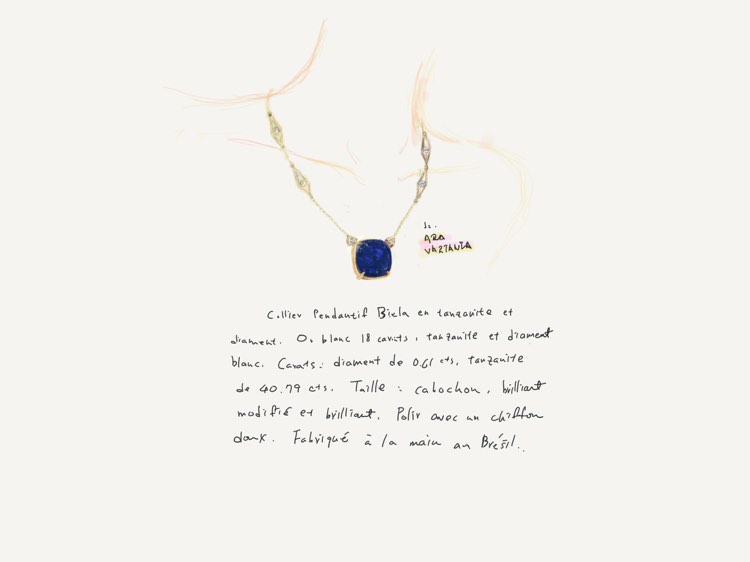 Sz.
ARA
VARTANIA
Collier Pendantif Biela en tanzanite et
diamant. Or blanc 18 carats, tanzanite et diamant
blanc. Carats: diamant de 0.61 cts, tanzanite
de 40.79 cts. Taille : cabochon, brilliant
modifié et brilliant. Polir avec un chiffon
doux. Fabriqué à la main au Brésil..